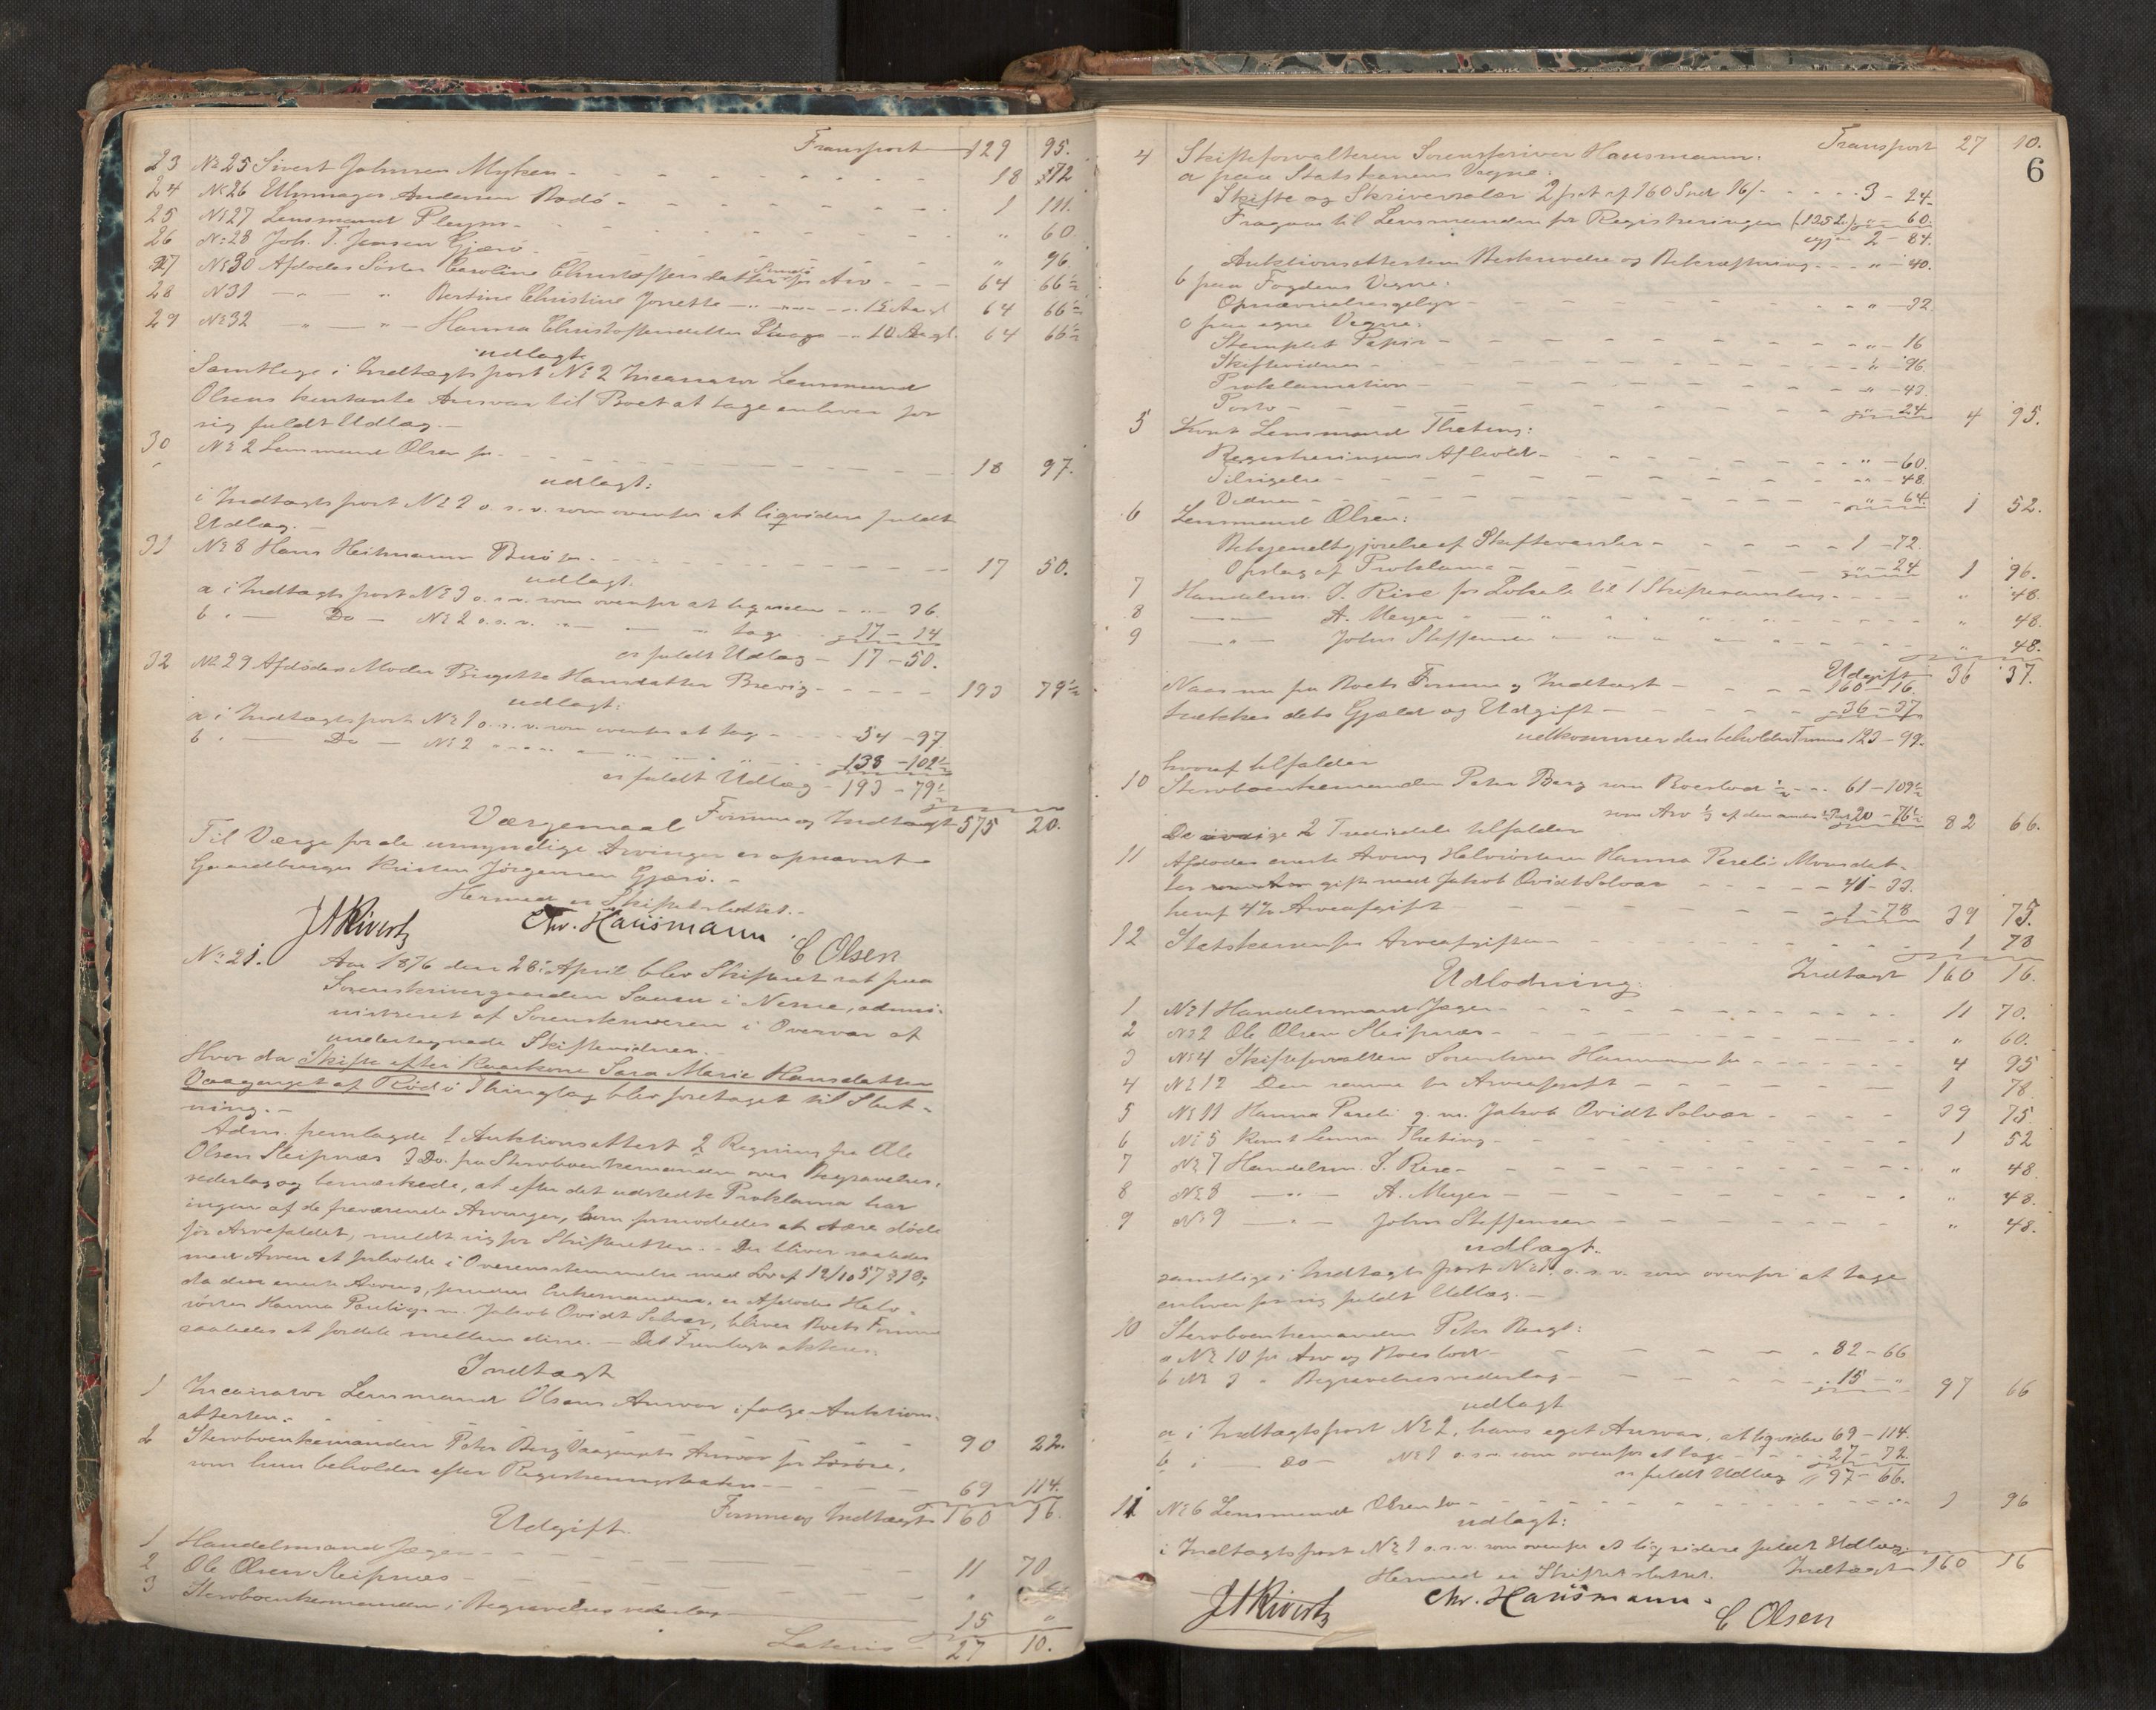 Transport 129 95.
23 No 25 Sivert Johnsen Myken - 18 72
24 No 26 Andersen Rodö - 1 111.
25 No 27 Lensmand Pleym - " 60
26 No 28 Joh. T. Jensen Gjærö - " 96
27 No 30 Afdødes Søster Caroline Christoffersdatter for Arv - 64 66½
28 No 31 - " - " Bertine Christine Jonette - 64 66½
29 No 32 - " - " - Hanna Christoffersdatter - 64 66½
udlagt
Samtlige i Indtægtspost No 2 Incassator Lensmand
Olsens kontante Ansvar til Boet at tage enhver for
sig fuldt Udlæg. -
30 No 2 Lensmand Olsen for - 18 97.
udlagt:
i Indtægtspost No 2 o. s. v. som ovenfor at liqvidere fuldt
Udlæg. -
31 No 8 Hans Heitmann Busö for - 17 50.
udlagt
a i Indtægtspost No 3 o. s. v. som ovenfor at liqvidere - " - 36
b " - Do - No 2 o. s. v. - " tage
er fuldt Udlæg - 17 - 50.
32 No 29 Afdødes Moder Birgitte Hansdatter Brevig - 193 79½
udlagt:
a i Indtægtspost No 1 o. s. v. som ovenfor at tage - 54 - 97
b " - Do - No 2 - 138 - 102½
er fuldt Udlæg - 193 - 79½
Formue og Indtægt 575 20.
Værgemaal
Til Værge for de umyndige Arvinger er opnævnt
Gaardbruger Kristen Jørgensen Gjærö. -
Hermed er Skiftet sluttet. -
J A Rivertz Chr. Hausmann C Olsen
No 21. Aar 1876 den 28de April blev Skifteret sat paa
Sorenskrivergaarden Sauen i Nesne, admi-
nistreret af Sorenskriveren i Overvær af
undertegnede Skiftevidner. -
Hvor da Skifte efter Kvækone Sara Marie Hansdatter
Vaagenget af Rødö Thinglag blev foretaget til Slut-
ning. -
Adm. fremlagde 1 Auktionsattest 2 Regning fra Ole
Olsen Sleipnæs 3 Do. fra Stervboenkemanden over Begravelses-
vederlag og bemærkede, at efter det udstedte Proklama har
ingen af de fraværende Arvinger, som formodedes at være døde
før Arvefaldet, meldt sig for Skifteretten. - Der bliver saaledes
med Arven at forholde i Overensstemmelse med Lov af 12/10 57 § 18;
da den eneste Arving, foruden Enkemanden, er Afdødes Halv-
søster Hanna Pauli g. m. Jakob Ovidt Solvær, bliver Boets Formue
saaledes at fordele mellem disse. - Det Fremlagte aktes.
Indtægt
1 Incassator Lensmand Olsens Ansvar ifølge Auktions-
attesten - 90 22.
2 Stervboenkemanden Peter Berg Vaagengets Ansvar for Løsøre,
som han beholder efter Registreringstaxten - 69 114.
Formue og Indtægt 160 16.
Udgift
1 Handelsmand Jæger - 11 70
2 Ole Olsen Sleipnæs - "
3 Stervboenkemanden i Begravelsesvederlag 15 "
Lateris 27 10.
6
Transport 27 10.
4 Skifteforvalteren Sorenskriver Hausmann:
a paa Statskassens Vegne:
Skifte og Skriversalær 2 pct af 160 Spd 16 ẞ - 3 - 24
Fragaar til Lensmanden for Registreringen " - 60.
igjen 2 - 84.
Auktionsattestens Beskrivelse og Bekræftning - " - 40.
b paa Fogdens Vegne:
Opnævnelsesgebyr - " - 32
c paa egne Vegne:
Stemplet Papir - " - 16
Skiftevidner - " - 96
Proklamation - " - 43.
Porto - " - 24 4 95.
5 Konst Lensmand Theting:
Registreringens Afhold - " - 60.
Tilsigelse - " - 48.
Vidner - " - 64. 1 52.
6 Lensmand Olsen:
Bekjendtgjørelse af Skiftesamler - 1 - 72.
Opslag af Proklama - " - 24 1 96.
7 Handelsm. J. Rise for Lokale til 1 Skiftesamling - " 48.
8 - " - A. Meyer - " 48.
9 - " - John Steffensen - " 48.
Udgift 36 37.
Naar nu fra Boets Formue og Indtægt - 160 - 16.
trækkes dets Gjæld og Udgift - 36 - 37
udkommer den beholdne Formue 123 - 99.
hvoraf tilfalder
10 Stervboenkemanden Peter Berg som Boeslod ½ - 61 - 109½
som Arv ⅓ af den anden 20 - 76½ 82 66.
De øvrige 2 Trediedele tilfalder
11 Afdødes eneste Arving Halvsøsteren Hanna Pauli Monsdat-
ter gift med Jakob Ovidt Solvær - 41 - 33.
heraf 4% Arveafgift - 1 - 78 39 75.
12 Statskassen for Arveafgiften - 1 78
Indtægt 160 16.
Udlodning.
1 No 1 Handelsmand Jæger - 11 70.
2 No 2 Ole Olsen Sleipnæs - " 60.
3 No 4 Skifteforvalteren Sorenskriver Hausmann for - 4 95
4 No 12 Den samme for Arveafgift - 1 78.
5 No 11 Hanna Pauli g. m. Jakob Ovidt Solvær - 39 75
6 No 5 Konst Lensm Theting - 1 52
7 No 7 Handelsm. J. Rise - " 48
8 No 8 - " - A. Meyer - " 48.
9 No 9 - " - John Steffensen - " 48.
udlagt.
samtlige i Indtægts post No 1. o. s. v. som ovenfor at tage
enhver for sig fuldt Udlæg. -
10 Stervboenkemanden Peter Berg:
a No 10 for Arv og Boeslod - 82 - 66
b No 3 " Begravelsesvederlag - 15 - " 97 66
udlagt
a i Indtægtspost No 2, hans eget Ansvar, at liqvidere 69 - 114.
b i - do - No 1 o. s. v. som ovenfor at tage - 27 - 72.
er fuldt Udlæg 97 - 66.
11 No 6 Lensmand Olsen for - 1 96
udlagt:
i Indtægtspost No 1 o. s. v. som ovenfor at liqvidere fuldt Udlæg.
Hermed er Skiftet sluttet. Indtægt 160 16
J A Rivertz Chr. Hausmann. C Olsen